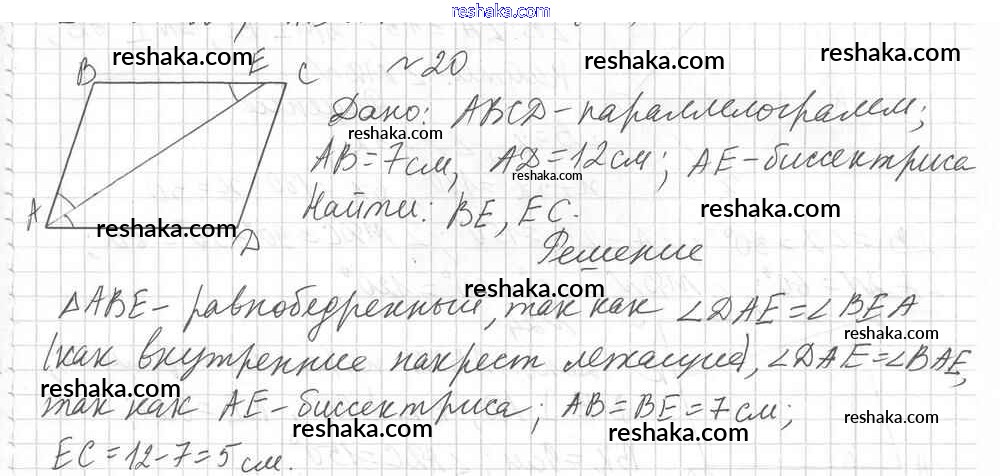 reshaka.com
№20
B E C
A D
Дано: ABCD - параллелограмм;
AB = 7 см, AD = 12 см; AE - биссектриса
Найти: BE, EC.
Решение
△ABE - равнобедренный, так как ∠DAE = ∠BEA
(как внутренние накрест лежащие), ∠DAE = ∠BAE,
так как AE - биссектриса; AB = BE = 7 см;
EC = 12 - 7 = 5 см.
reshaka.com
reshaka.com
reshaka.com
reshaka.com
reshaka.com
reshaka.com
reshaka.com
reshaka.com
reshaka.com
reshaka.com
reshaka.com
reshaka.com
reshaka.com